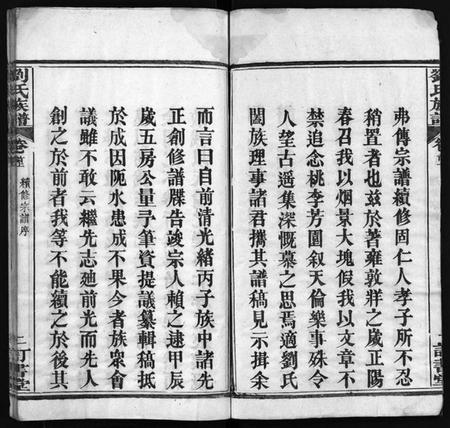 劉氏族譜
弗傳宗譜續修固仁人孝子所不忍
稍置者也兹於著雍敦牂之歲正陽
春召我以烟景大塊假我以文章不
禁追念桃李芳園叙天倫樂事殊令
人望古遥集深慨慕之思焉適劉氏
闔族理事諸君攜其譜稿見示揖余
而言曰自前清光緒丙子族中諸先
正創修譜牒告竣宗人賴之逮甲辰
歲五房公量予筆資提議纂輯稿抵
於成因阨水患成不果今者族衆會
議雖不敢云繼先志廸前光而先人
創之於前者我等不能續之於後其
劉氏族譜
卷首
續修宗譜序